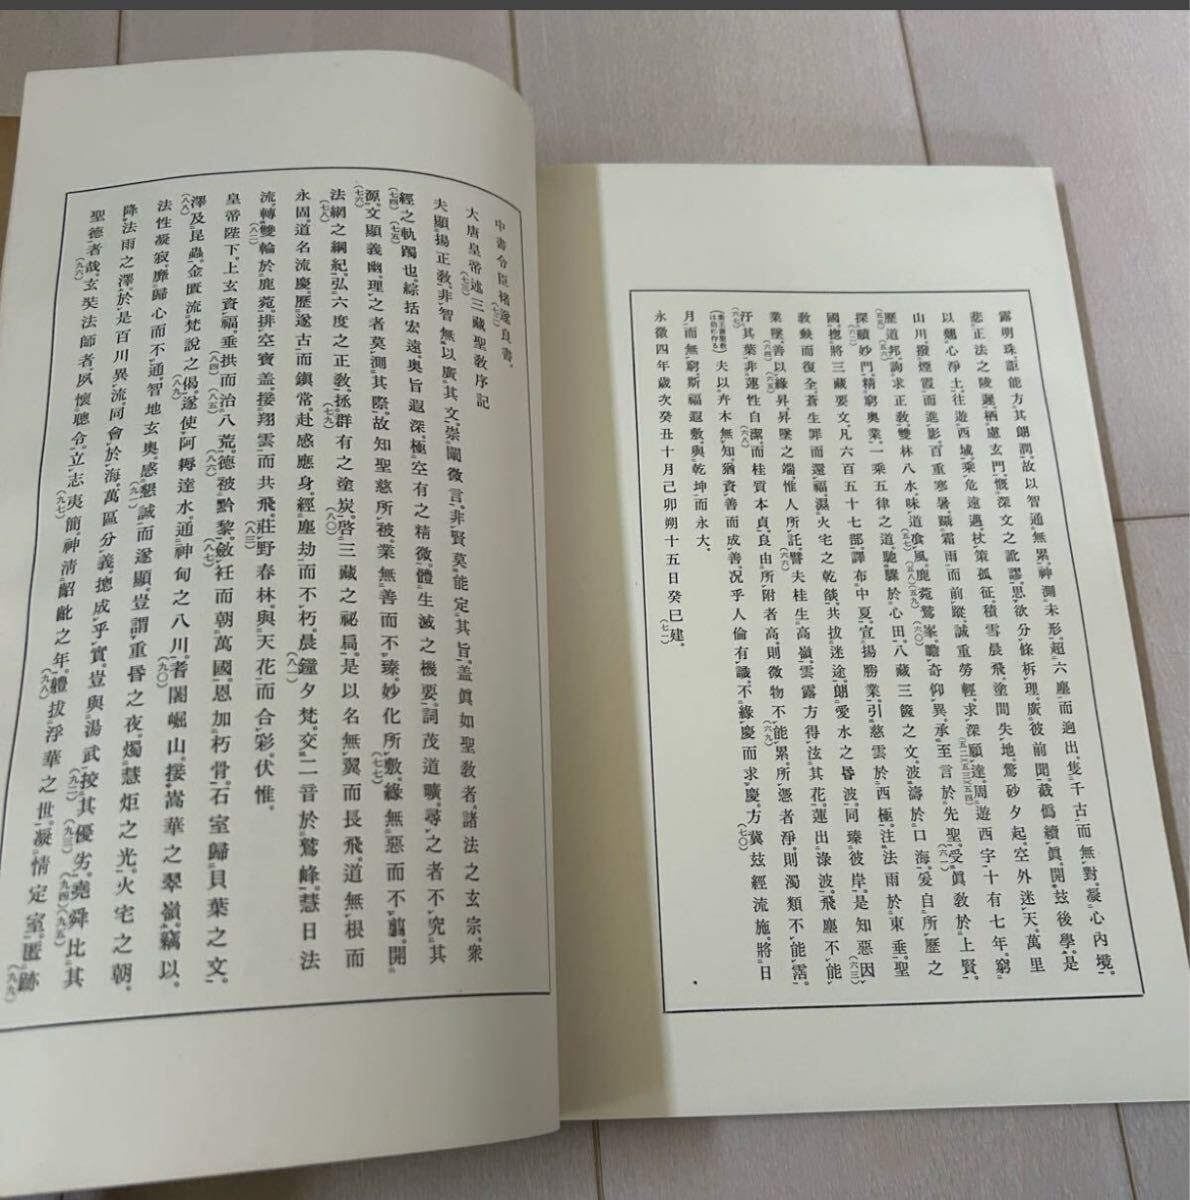 露明珠詎能方其朗潤。故以智通無累。神測未形。超六塵而迥出。隻千古而無對。凝心内境。
悲正法之陵遲。栖慮玄門。慨深文之訛謬。思欲分條析理。廣彼前聞。截僞續眞。開茲後學。是
以翹心淨土。往遊西域。乘危遠邁。杖策孤征。積雪晨飛。塗間失地。驚砂夕起。空外迷天。萬里
山川。撥煙霞而進影。百重寒暑。躡霜雨而前蹤。誠重勞輕。求深願達。周遊西宇。十有七年。窮
歷道邦。詢求正敎。雙林八水。味道飡風。鹿菀鷲峯。瞻奇仰異。承至言於先聖。受眞敎於上賢。
探賾妙門。精窮奧業。一乘五律之道。馳驟於心田。八藏三篋之文。波濤於口海。爰自所歷之
國。揔將三藏要文。凡六百五十七部。譯布中夏。宣揚勝業。引慈雲於西極。注法雨於東垂。聖
敎缺而復全。蒼生罪而還福。濕火宅之乾燄。共拔迷途。朗愛水之昏波。同臻彼岸。是知惡因
業墜。善以緣昇。昇墜之端。惟人所託。譬夫桂生高嶺。雲露方得泫其花。蓮出淥波。飛塵不能
汙其葉。非蓮性自潔。而桂質本貞。良由所附者高。則微物不能累。所憑者淨。則濁類不能霑。
夫以卉木無知。猶資善而成善。況乎人倫有識。不緣慶而求慶。方冀茲經流施。將日
月而無窮。斯福遐敷。與乾坤而永大。
永徽四年歲次癸丑十月己卯朔十五日癸巳建。(七一)
中書令臣褚遂良書。(七二)
大唐皇帝述三藏聖敎序記(七三)
夫顯揚正敎。非智無以廣其文。崇闡微言。非賢莫能定其旨。盖眞如聖敎者。諸法之玄宗。衆
經之軌躅也。綜括宏遠。奧旨遐深。極空有之精微。體生滅之機要。詞茂道曠。尋之者不究其
源。文顯義幽。理之者莫測其際。故知聖慈所被。業無善而不臻。妙化所敷。緣無惡而不翦。開
法網之綱紀。弘六度之正敎。拯群有之塗炭。啓三藏之祕扃。是以名無翼而長飛。道無根而
永固。道名流慶。歷遂古而鎭常。赴感應身。經塵劫而不朽。晨鐘夕梵。交二音於鷲峰。慧日法
流。轉雙輪於鹿菀。排空寶盖。接翔雲而共飛。莊野春林。與天花而合彩。伏惟。
皇帝陛下。上玄資福。垂拱而治八荒。德被黔黎。斂衽而朝萬國。恩加朽骨。石室歸貝葉之文。
澤及昆蟲。金匱流梵說之偈。遂使阿耨達水。通神甸之八川。耆闍崛山。接嵩華之翠嶺。竊以。
法性凝寂。靡歸心而不通。智地玄奧。感懇誠而遂顯。豈謂重昏之夜。燭慧炬之光。火宅之朝。
降法雨之澤。於是百川異流。同會於海。萬區分義。揔成乎實。豈與湯武挍其優劣。堯舜比其
聖德者哉。玄奘法師者。夙懷聰令。立志夷簡。神清齠齔之年。體拔浮華之世。凝情定室。匿跡